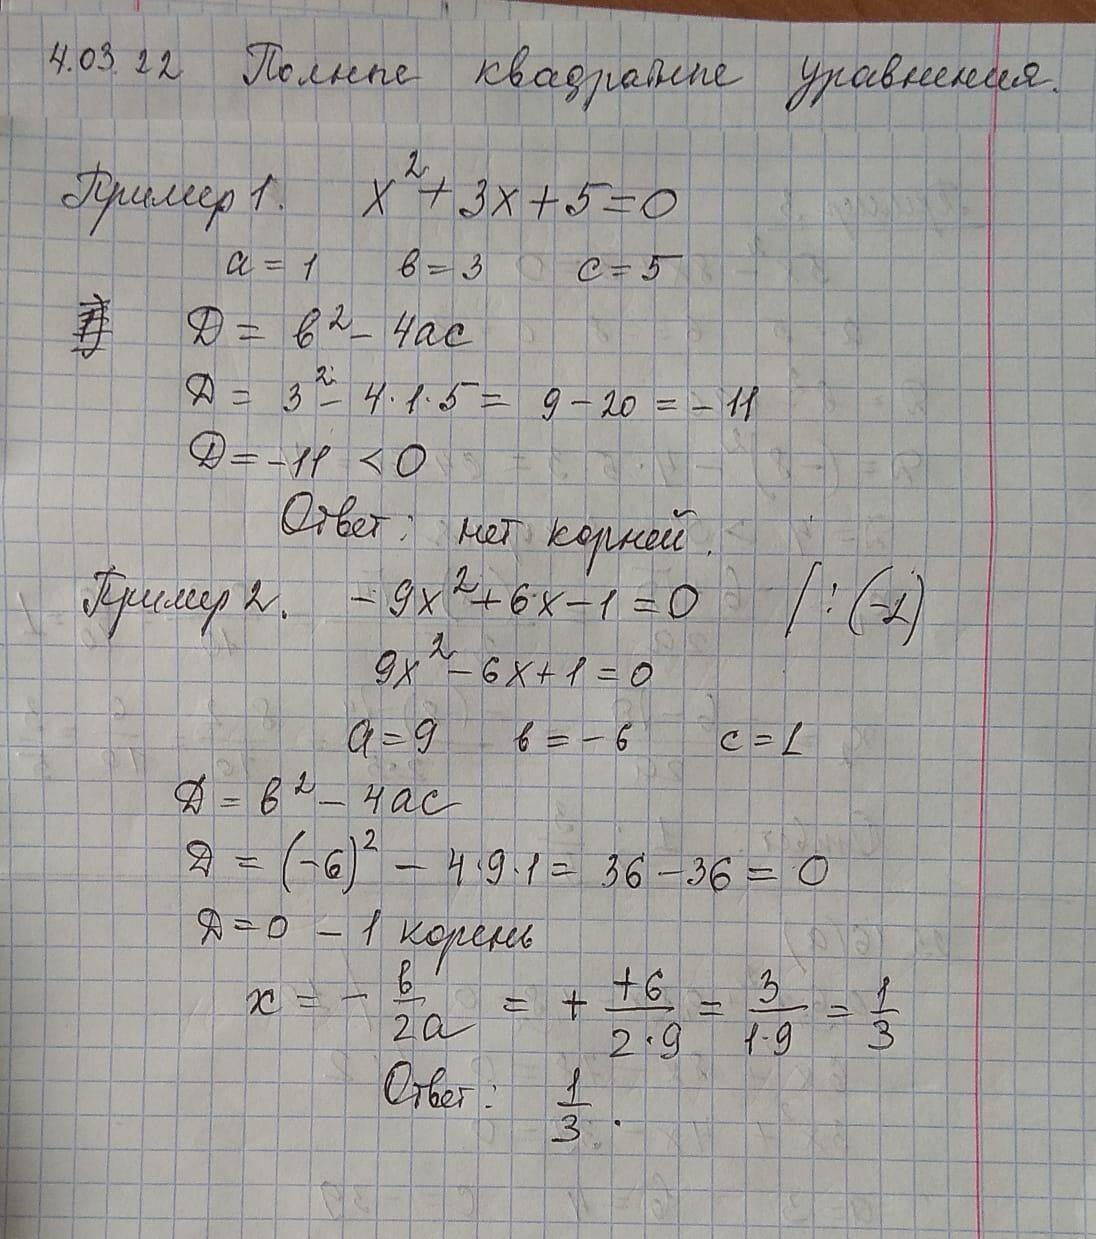 4.03.22 Полные квадратные уравнения.
Пример 1. x² + 3x + 5 = 0
a = 1 в = 3 c = 5
D = в² - 4ac
D = 3² - 4·1·5 = 9 - 20 = -11
D = -11 < 0
Ответ: нет корней.
Пример 2. -9x² + 6x - 1 = 0 /:(-1)
9x² - 6x + 1 = 0
a = 9 в = -6 c = 1
D = в² - 4ac
D = (-6)² - 4·9·1 = 36 - 36 = 0
D = 0 - 1 корень
x = - в/2a = + +6/2·9 = 3/1·9 = 1/3
Ответ: 1/3.